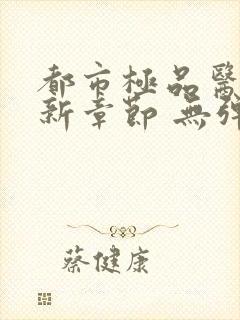 都市極品醫
新章節 無彈
蔡健康